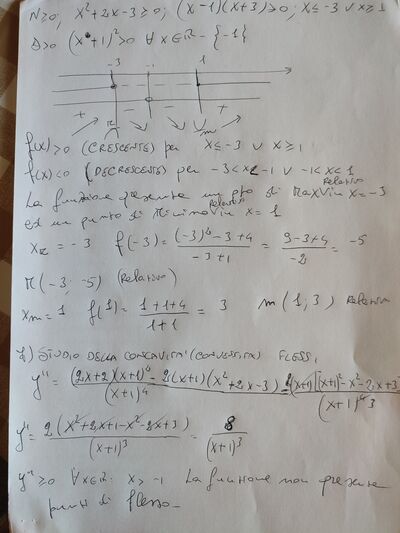 N≥0; x²+2x-3≥0; (x-1)(x+3)≥0; x≤-3 ∨ x≥1
Δ>0 (x+1)²>0 ∀x∈R-{-1}
-3 -1 1
+ - - +
M m
f(x)>0 (CRESCENTE) per x≤-3 ∨ x≥1
f(x)<0 (DECRESCENTE) per -3<x<-1 ∨ -1<x<1
La funzione presenta un pto di Max relativo in x=-3
ed un punto di Minimo relativo in x=1
x_M=-3 f(-3)=((-3)²-3+4)/(-3+1)=(9-3+4)/(-2)=-5
M(-3;-5) (Relativo)
x_m=1 f(1)=(1+1+4)/(1+1)=3 m(1;3) Relativo
7) STUDIO DELLA CONCAVITA' (CONVESSITA') FLESSI
y''=((2x+2)(x+1)²-2(x+1)(x²+2x-3))/(x+1)⁴=2(x+1)[(x+1)²-x²-2x+3]/(x+1)⁴³
y''=2(x²+2x+1-x²-2x+3)/(x+1)³=8/(x+1)³
y''≥0 ∀x∈R: x>-1 La funzione non presenta
punti di flesso-